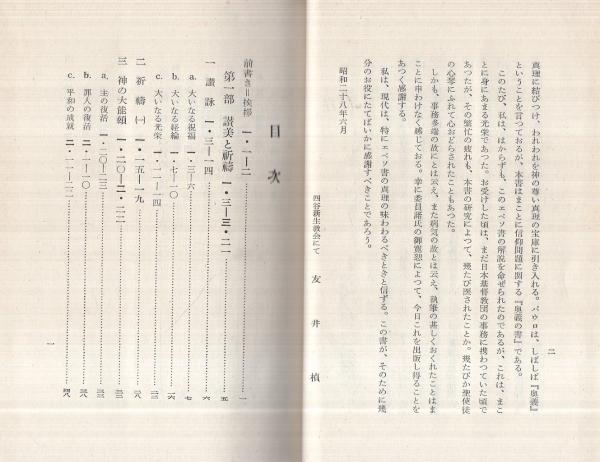 真理に結びつけ、われわれを神の尊い真理の宝庫に引き入れる。パウロは、しばしば『奥義』
ということを言つておるが、本書はまことに信仰問題に関する『奥義の書』である。
このたび、私は、はからずも、このエペソ書の解説を命ぜられたのであるが、これは、まこ
とに身にあまる光栄であつた。お受けした頃は、まだ日本基督教団の事務に携わつていた頃で
あつたが、その繁忙の疲れも、本書の研究によつて、幾たび医されたことか。幾たびか聖使徒
の心琴にふれて心おどらされたこともあつた。
しかも、事務多端の故にとは云え、また病気の故とは云え、執筆の甚しくおくれたことはま
ことに申わけなく感じておる。幸に委員諸氏の御寛恕によつて、今日これを出版し得ることを
あつく感謝する。
私は、現代は、特にエペソ書の真理の味わわるべきときと信ずる。この書が、そのために幾
分のお役にたてばいかに感謝すべきことであろう。
昭和二十八年六月
四谷新生教会にて 友井楨
二
目次
前書き=挨拶 一・一―二 一
第一部 讃美と祈禱 一・三―三・二一 五
一 讃詠 一・三―一四 六
a、大いなる祝福 一・三―六 七
b、大いなる経綸 一・七―一〇 一六
c、大いなる光栄 一・一一―一四 二三
二 祈禱(一) 一・一五―一九 二八
三 神の大能顕 一・二〇―二・二二 三三
a、主の復活 一・二〇―二三 三三
b、罪人の復活 二・一―一〇 三八
c、平和の成就 二・一一―二二 四八
一